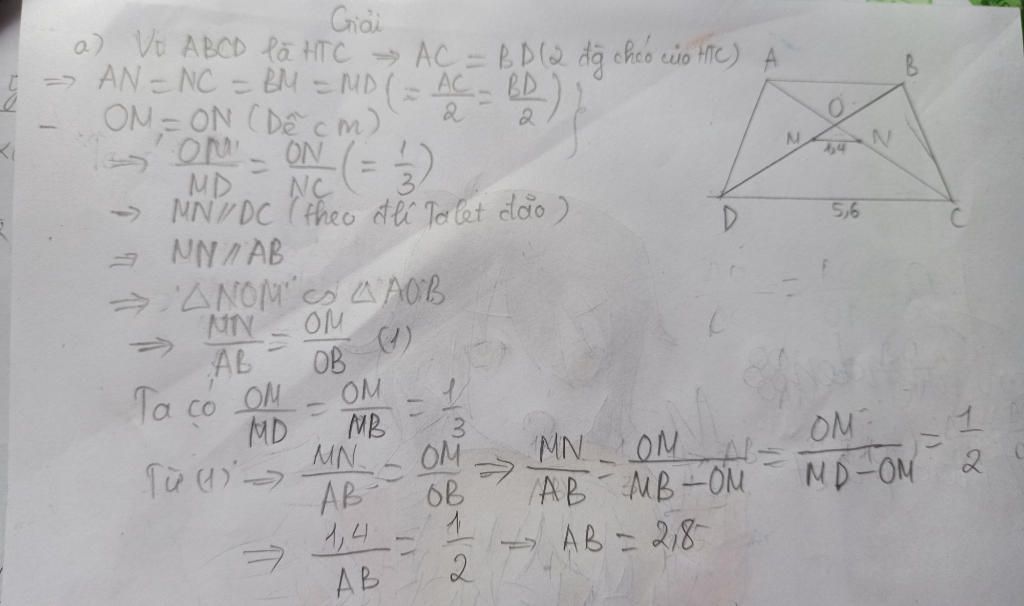 Giải
a) Vì ABCD là HTC → AC = BD (2 đg chéo của HTC)
⇒ AN = NC = BM = MD (= AC/2 = BD/2) }
- OM = ON (Dễ cm)
⇒ OM/MD = ON/NC (= 1/3)
→ MN // DC (theo đlí Talet đảo)
⇒ MN // AB
⇒ △NOM ∽ △AOB
⇒ MN/AB = OM/OB (1)
Ta có OM/MD = OM/MB = 1/3
Từ (1) ⇒ MN/AB = OM/OB ⇒ MN/AB = OM/MB-OM = OM/MD-OM = 1/2
⇒ 1,4/AB = 1/2 → AB = 2,8
A
B
O
M
N
1,4
D
5,6
C